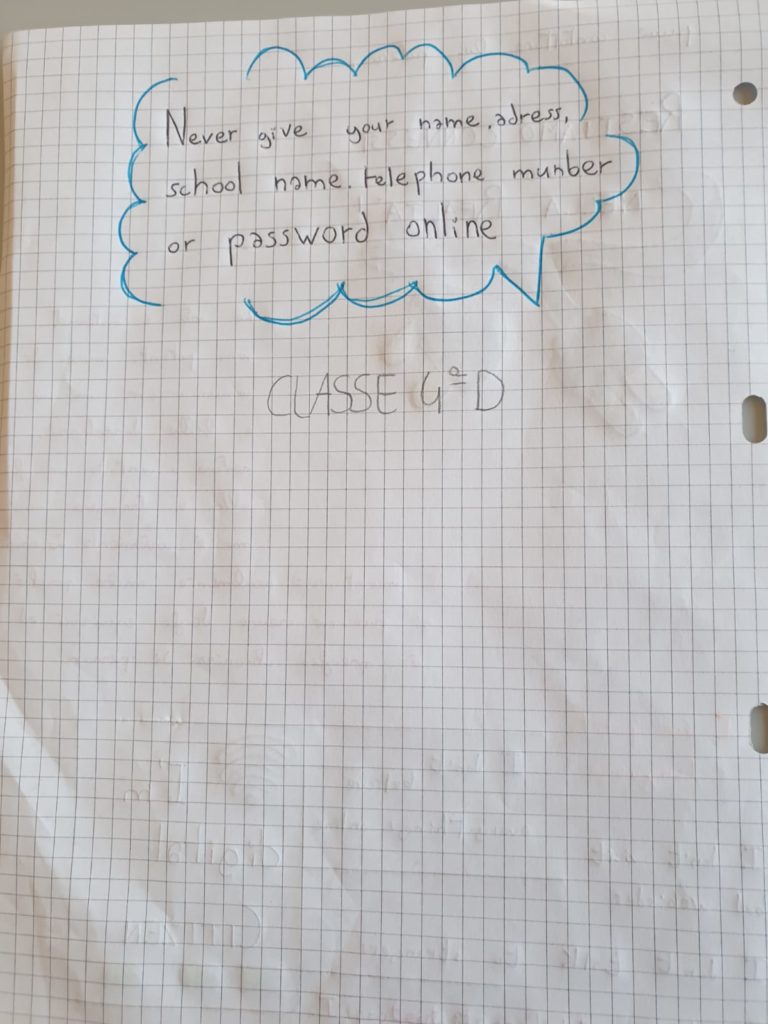 Never give your name, adress,
school name, telephone munber
or password online
CLASSE 4ªD